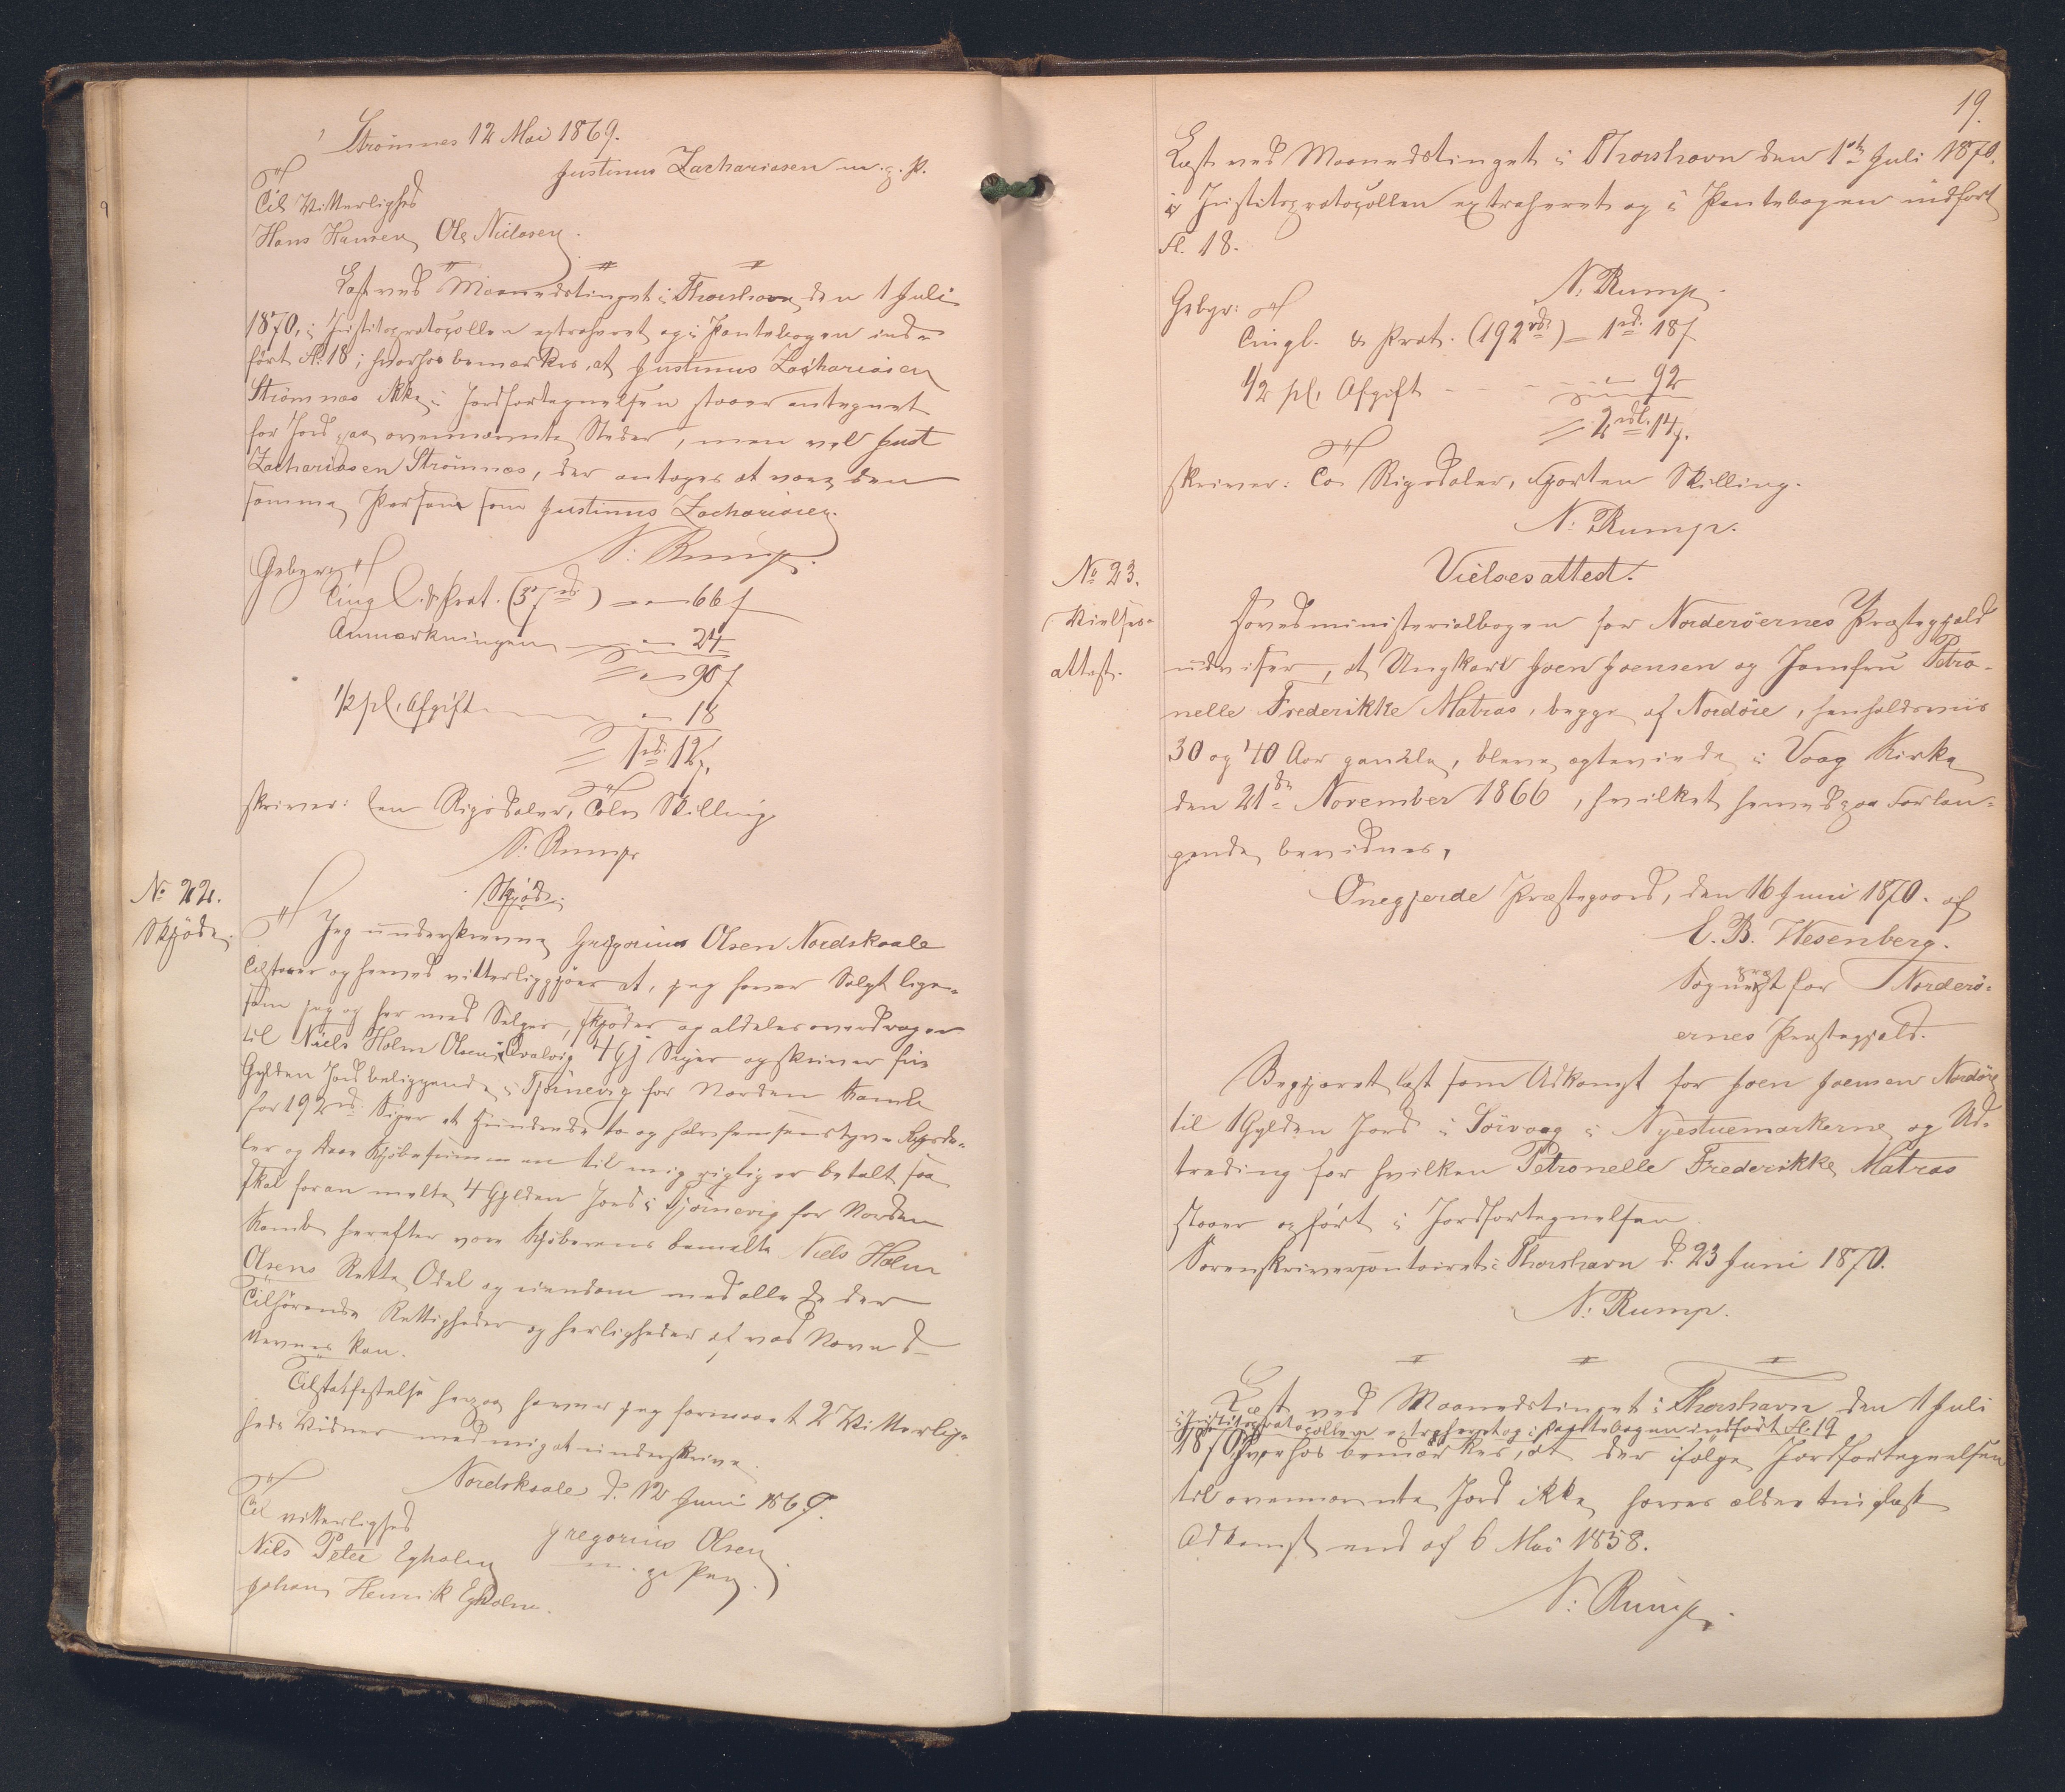 Strömnes 12 Mai 1869.
Justinus Zachariasen m. g. P.
Til Vitterlighed
Hans Hansen Ole Nielsen.
Læst ved Maanedstinget i Thorshavn den 1 Juli
1870, i Justitsprotocollen extraheret og i Pantebogen ind-
ført Fl. 18; hvorhos bemærkes, at Justinus Zachariasen
Strömnæs ikke i Jordfortegnelsen staaer antegnet
for Jord paa ovennævnte Steder, men vel Just
Zachariasen Strömnæs, der antages at være den
samme Person som Justinus Zachariasen.
N: Rump.
Gebyr:
Tingl. & Prot. (37 rd.) — 66 ſ
Anmærkningen — 24
90 ſ
1/2 pCt. Afgift — 18
1 rd. 12 ſ.
skriver: Een Rigsdaler, Tolv Skilling
N: Rump
No 22.
Skjøde.
Skjøde.
Jeg underskrevne Gregorius Olsen Nordskaale
Tilstaaer og herved vitterliggjöer at, jeg haver Solgt lige-
som jeg og her med Selger, skjøder og aldeles overdrager
til Niels Holm Olsen, Qvalvig 4 Gj Siger og skriver fire
Gylden Jord beliggende i Tjörnevig for Norden Kamb
for 192 rd. Siger et Hundrede to og halvfemsenstyve Rigsda-
ler og daae Kjöbesummen til mig rigtig er betalt saa
skal foran melte 4 Gylden Jord i Tjörnevig for Norden
Kamb herefter være Kjöberens bemelte Niels Holm
Olsens Rette Odel og eiendom med alle de der
Tilhörende Rettigheder og herligheder af vad Navn d
Nevnes kan.
Tilstatfestelse herpaa haver jeg formaaet 2 Vitterlig-
heds Vidner med mig at underskrive.
Nordskaale d. 12 Juni 1869.
Til vitterlighed
Gregorius Olsen
m. g. Pen.
Nils Peter Egholm
Johan Henrik Egholm.
19.
Læst ved Maanedstinget i Thorshavn den 1ste Juli 1870.
i Justitsprotocollen extraheret og i Pantebogen indført
Fl. 18.
N: Rump.
Gebyr:
Tingl. & Prot. (192 rd.) — 1 rd. 18 ſ
1/2 pCt. Afgift — 92
2 rdl. 14 ſ.
skriver: To Rigsdaler, Fjorten Skilling.
N: Rump.
No 23.
Vielses-
attest.
Vielsesattest.
Hovedministerialbogen for Norderöernes Præstegjeld
udviser, at Ungkarl Joen Joensen og Jomfru Petro-
nelle Frederikke Matras, begge af Nordöie, henholdsviis
30 og 40 Aar gamle, bleve egteviede i Vaag Kirke
den 21de November 1866, hvilket herved paa Forlan-
gende bevidnes,
Önegjerde Præstegaard, den 16 Juni 1870. af
E. B. Wesenberg.
Sognepræst for Norderö-
ernes Præstegjeld.
Begjæret læst som Adkomst for Joen Joensen Nordöie
til 1 Gylden Jord i Sörvaag i Nyestuemarkerne og Ud-
træding for hvilken Petronelle Frederikke Matras
staaer opført i Jordfortegnelsen.
Sorenskrivercontoiret i Thorshavn d. 23 Juni 1870.
N: Rump.
Læst ved Maanedstinget i Thorshavn den 1 Juli
i Justitsprotocollen extraheret og i Pantebogen indført Fl. 19
1870, hvorhos bemærkes, at der ifølge Jordfortegnelsen
til ovennævnte Jord ikke haves ældre tinglæst
Adkomst end af 6 Mai 1858.
N: Rump.